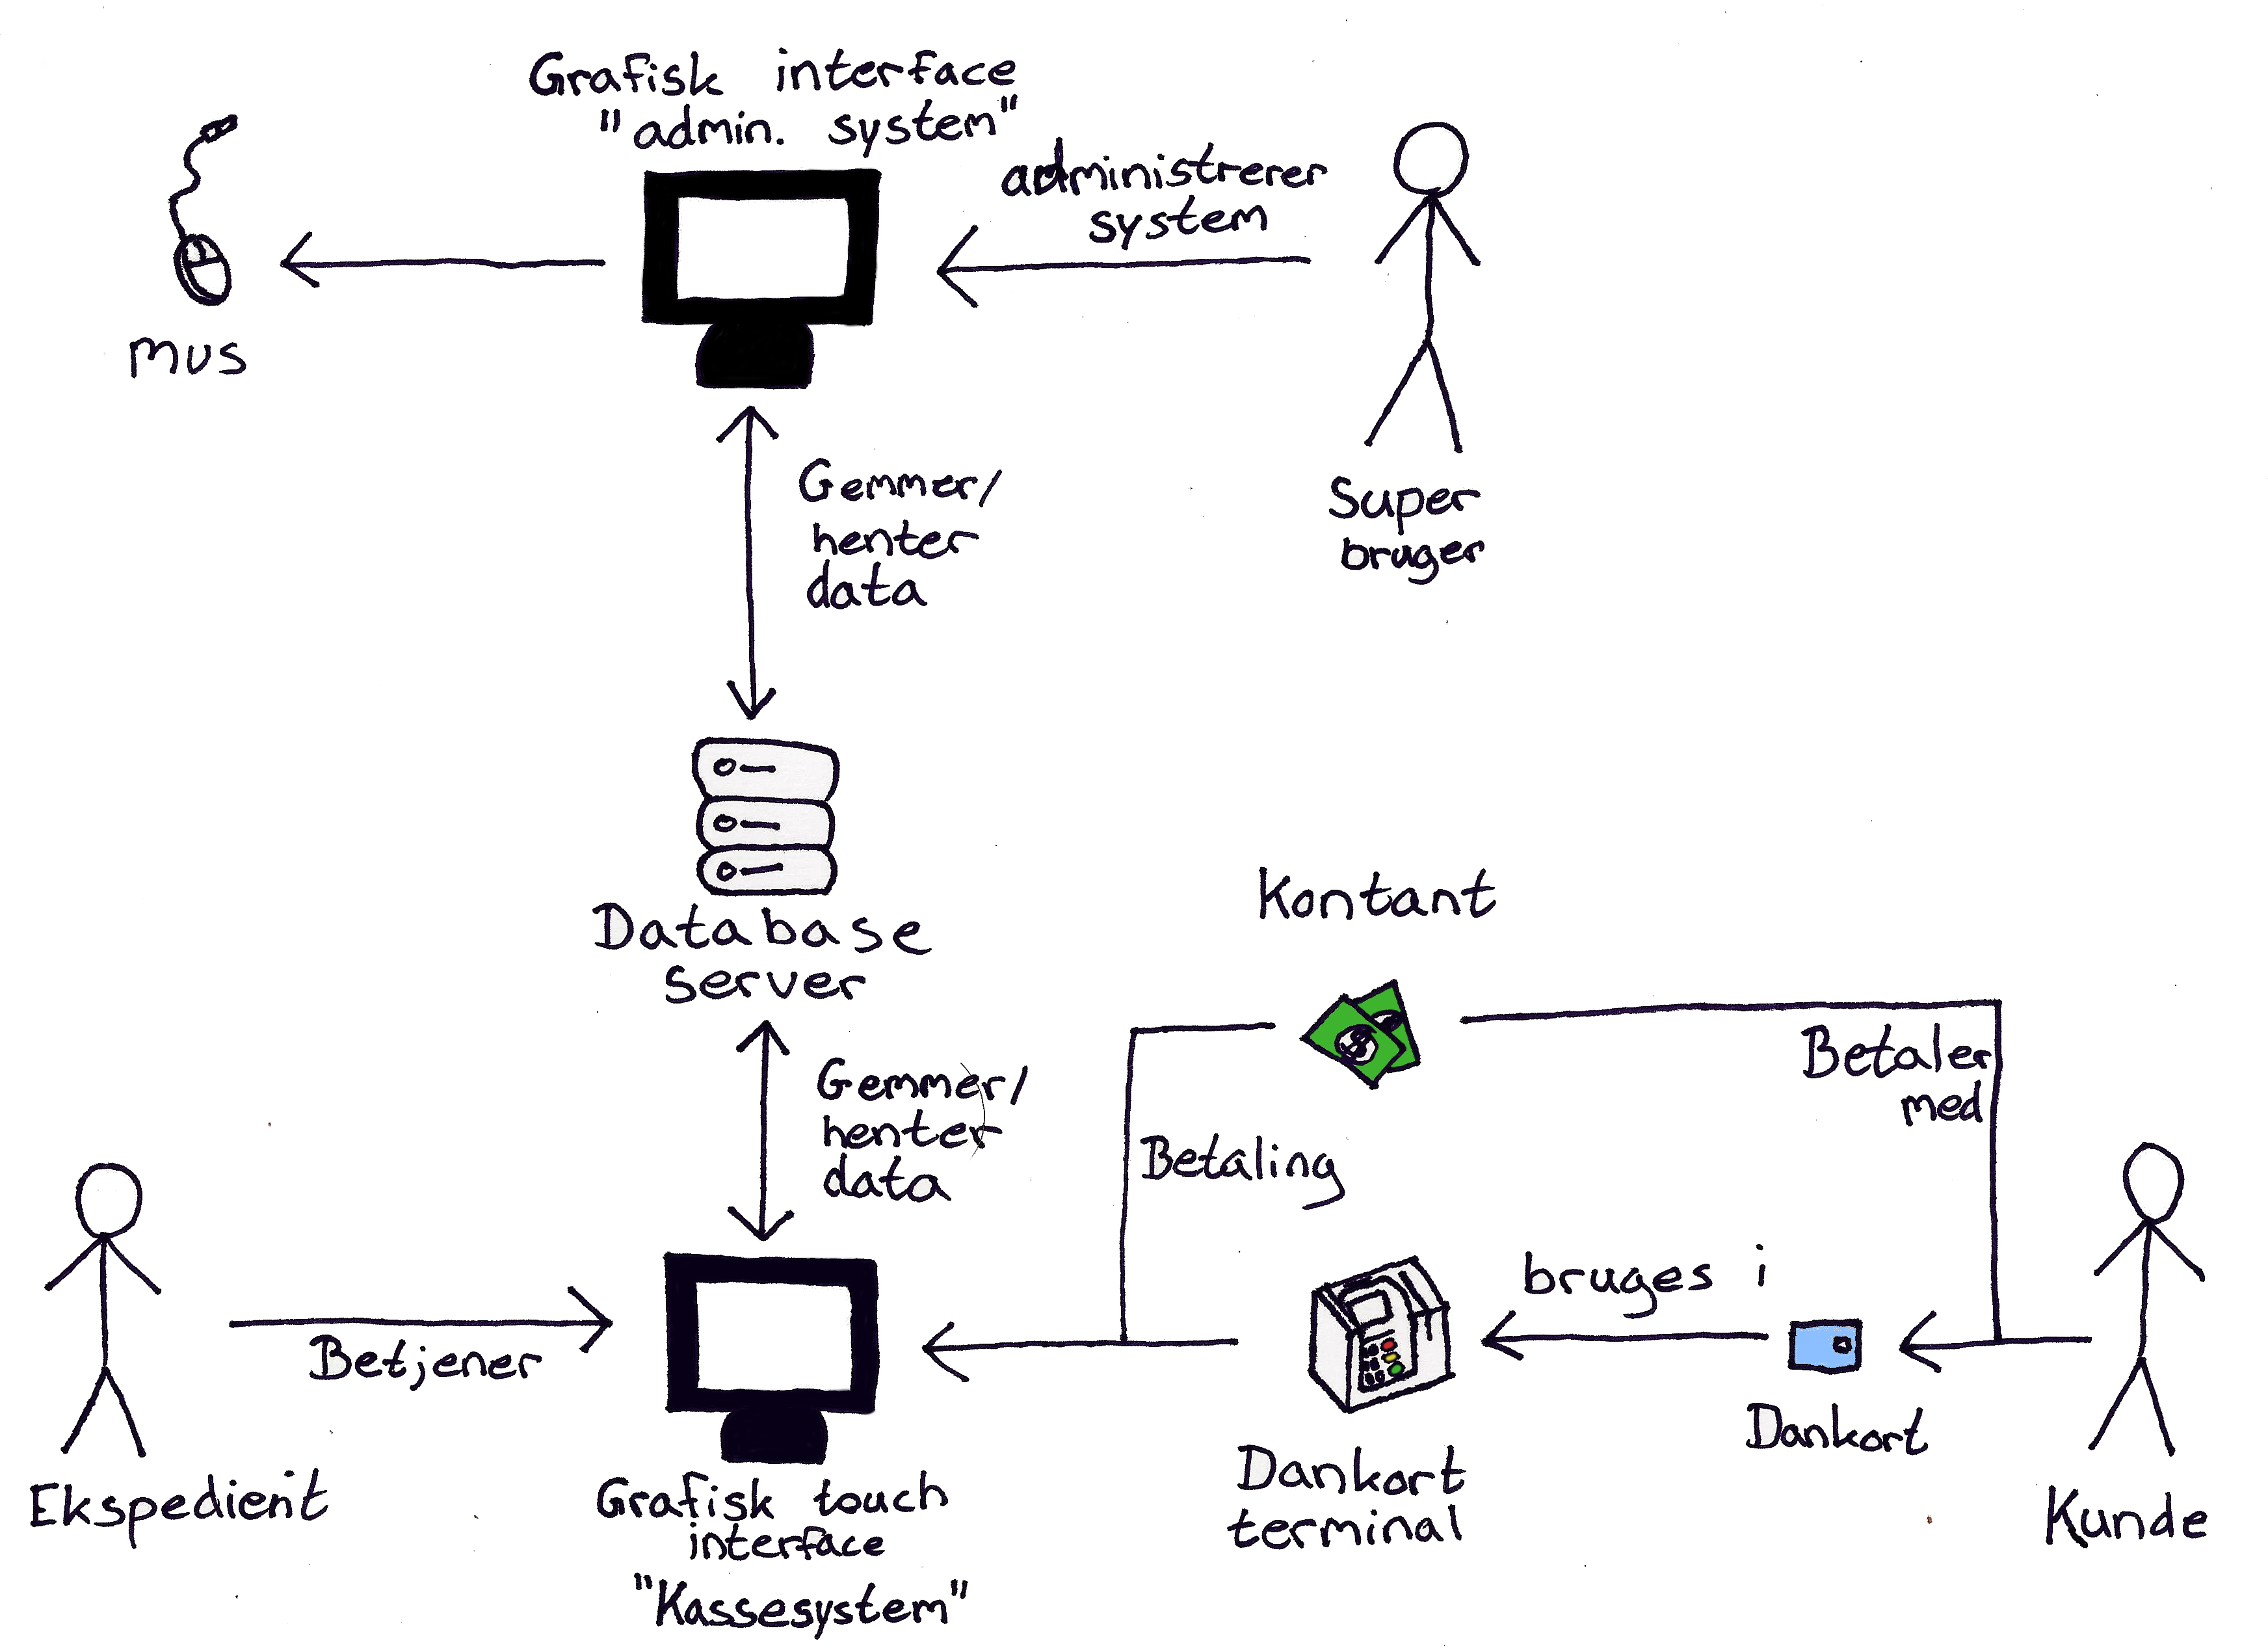 Grafisk interface
"admin. system"
administrerer
system
mus
Super
bruger
Gemmer/
henter
data
Database
server
Kontant
Betaler
med
Gemmer/
henter
data
Betaling
bruges i
Betjener
Dankort
Ekspedient
Grafisk touch
interface
"Kassesystem"
Dankort
terminal
Kunde